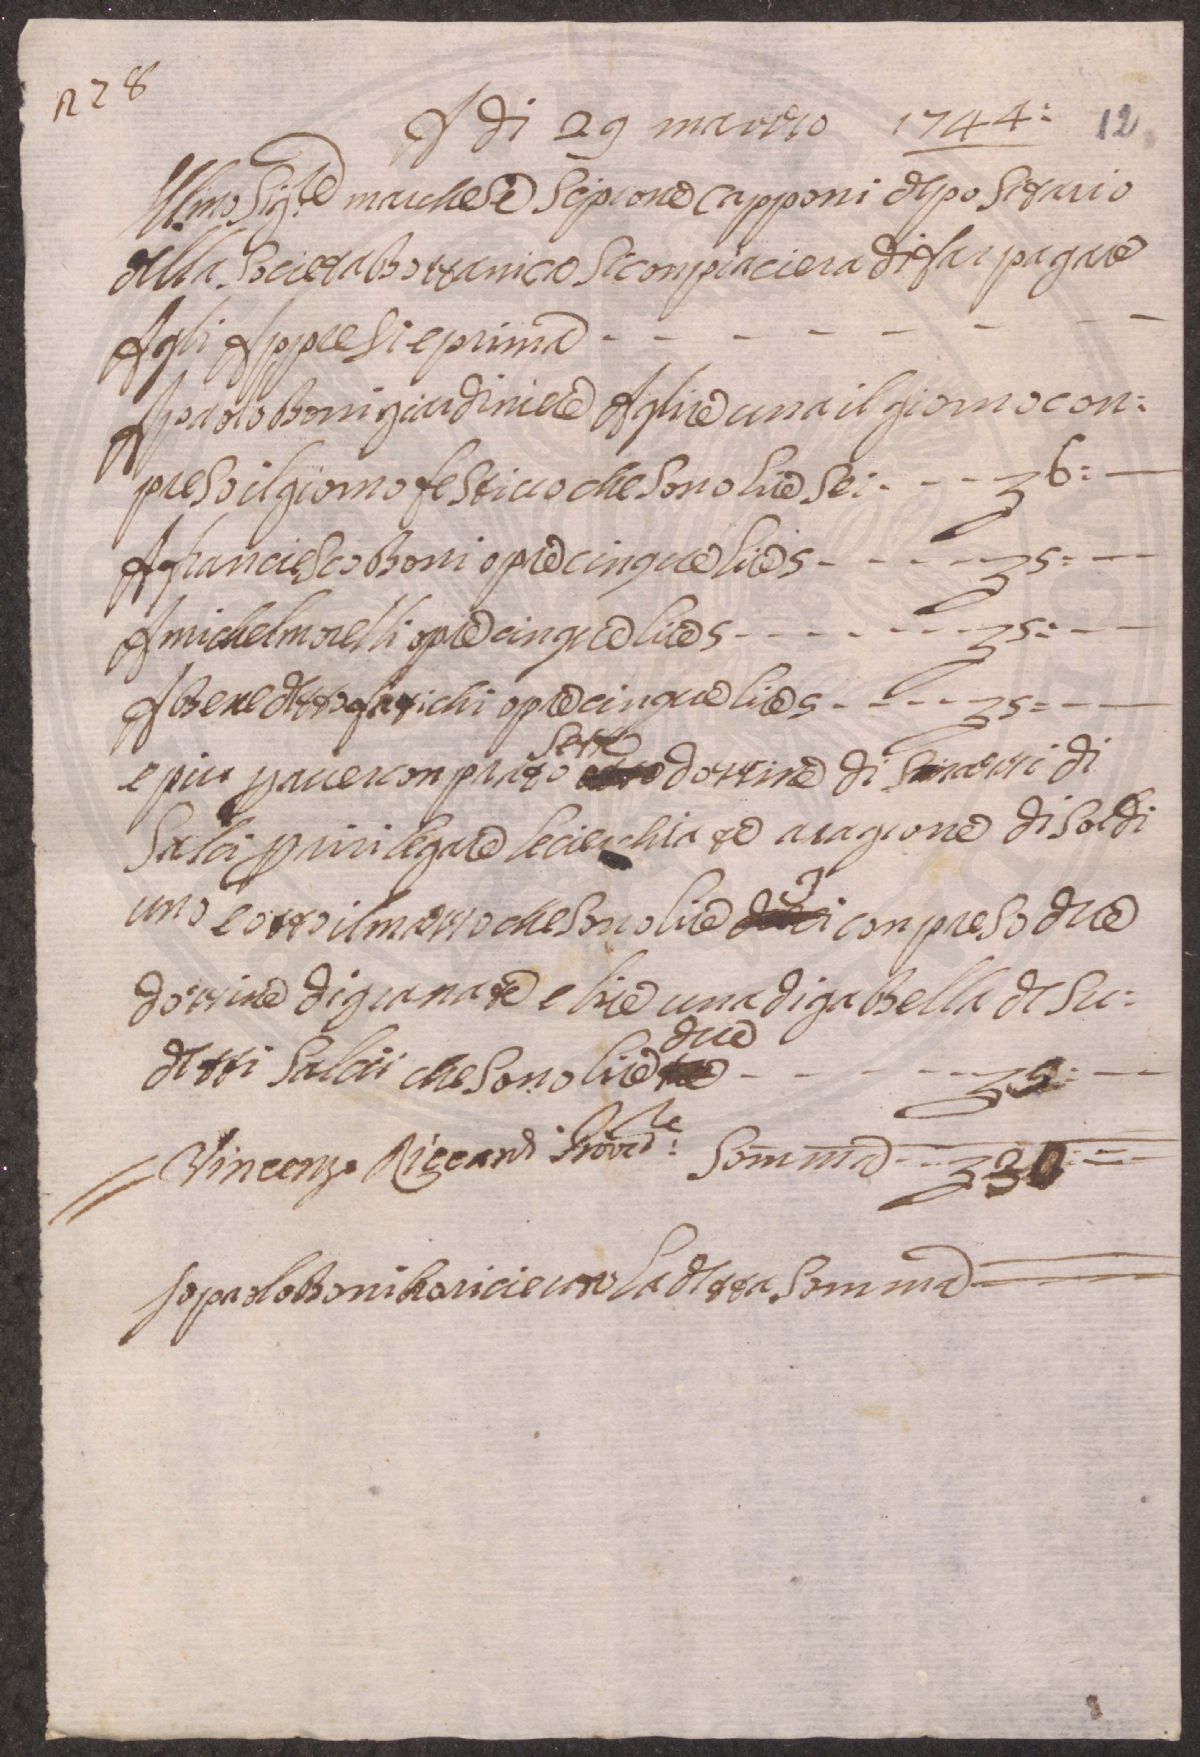 n 28
A di 29 marzo 1744: 12
Ill.mo Sig.re marchese Scipione Capponi dipositario
della Societa Bottanica Si conpiaciera di far pagare
Agli Appresi e prima
A paolo Boni giardiniere A lire una il giorno con:
preso il giorno festivo che Sono lire Sei - - - 6:
A franciesco Boni opre cinque lire 5 - - - 5:
A michel morelli opre cinque lire 5 - - - 5:
A Benedetto opre cinque lire 5 - - - 5:
Sette
e piu p aver conprato dozzine di mazzi di
Salci p rilegare le a ragione di Soldi
3
uno e otto il mazzo che Sono lire conpreso due
dozzine di granate e lire una di gabbella de Su:
due
detti Salci che Sono lire - - -
Vincenzo Riccardi Provv.re Somma - - -
Io paolo Boni ho riceuto la detta Somma